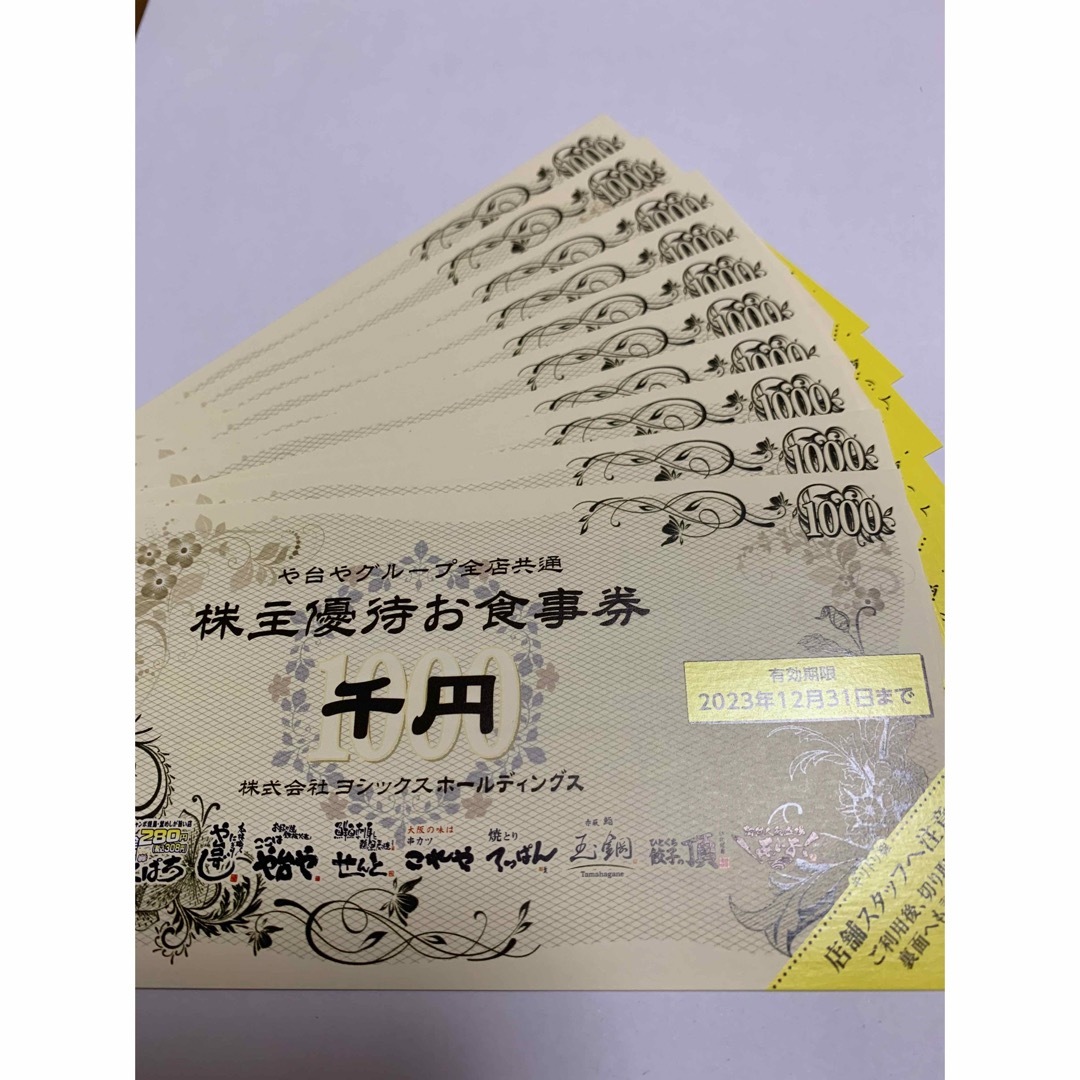 1000
1000
1000
1000
1000
1000
1000
1000
1000
1000
や台やグループ全店共通
株主優待お食事券
1000
千円
有効期限
2023年12月31日まで
株式会社 ヨシックス ホールディングス
280円
ぱち
や台ずし
ここは や台や
せんと
大阪の味は
串カツ
これや
焼とり
てっぱん
赤坂 鮨
玉鋼
Tamahagane
ひとくち
餃子の頂
キリトリ線
店舗スタッフへ注意
ご利用後、切り取
裏面へ